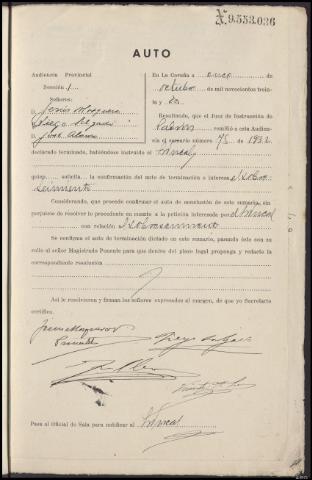 N.9.553.036
AUTO
Audiencia Provincial
Sección 1.
Señores:
D. Jesús Mosquera
D. Diego Delgado
D. José Alonso
En La Coruña a once de
octubre de mil novecientos treinta
y dos
Resultando, que el Juez de Instrucción de
remitió a esta Audiencia
el sumario número 75 de 1932
declarado terminado, habiéndose instruido al Fiscal,
quien solicita la confirmación del auto de terminación e interesa el sobre
seimiento
Considerando, que procede confirmar el auto de conclusión de este sumario, sin
perjuicio de resolver lo procedente en cuanto a la petición interesada por el Fiscal
con relación al sobreseimiento
Se confirma el auto de terminación dictado en este sumario, pasando éste con su
rollo al señor Magistrado Ponente para que dentro del plazo legal proponga y redacte la
correspondiente resolución
Así lo resolvieron y firman los señores expresados al margen, de que yo Secretario
certifico.
Pase al Oficial de Sala para notificar al Fiscal